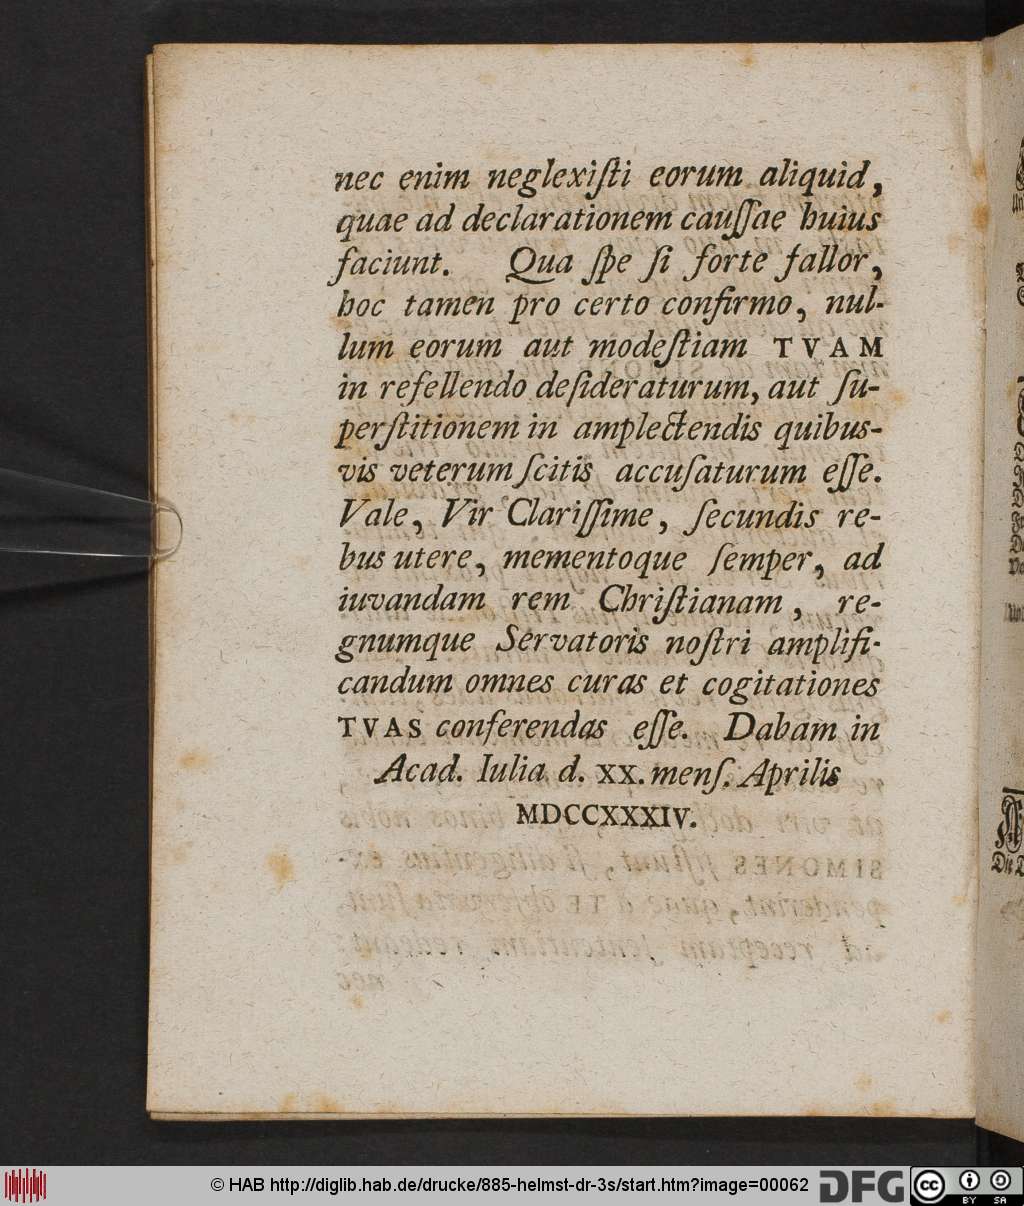 nec enim neglexiſti eorum aliquid,
quae ad declarationem cauſſae huius
faciunt. Qua ſpe ſi forte fallor,
hoc tamen pro certo confirmo, nul-
lum eorum aut modeſtiam TVAM
in refellendo deſideraturum, aut ſu-
perſtitionem in amplectendis quibus-
vis veterum ſcitis accuſaturum eſſe.
Vale, Vir Clariſſime, ſecundis re-
bus utere, mementoque ſemper, ad
iuvandam rem Chriſtianam, re-
gnumque Servatoris noſtri amplifi-
candum omnes curas et cogitationes
TVAS conferendas eſſe. Dabam in
Acad. Iulia d. XX. menſ. Aprilis
MDCCXXXIV.
© HAB http://diglib.hab.de/drucke/885-helmst-dr-3s/start.htm?image=00062
DFG
cc BY SA